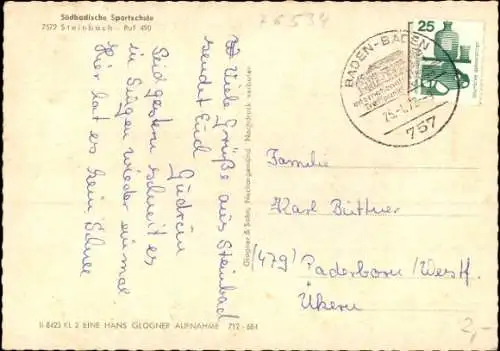 Südbadische Sportschule
7572 Steinbach - Ruf 490
76534
Viele Grüße aus Steinbad
sendet Euch
Gudrun
Seid gestern schneit es
in Singen wieder einmal.
Hier hat es kein Schnee
Glogner & Sohn, Neckargemünd. Nachdruck verboten
BADEN-BADEN
757
25
Familie
Karl Büttner
(479) Paderborn/Westf.
Ükern
b 8423 KL 2 EINE HANS GLOGNER AUFNAHME 712 - 684
2,-